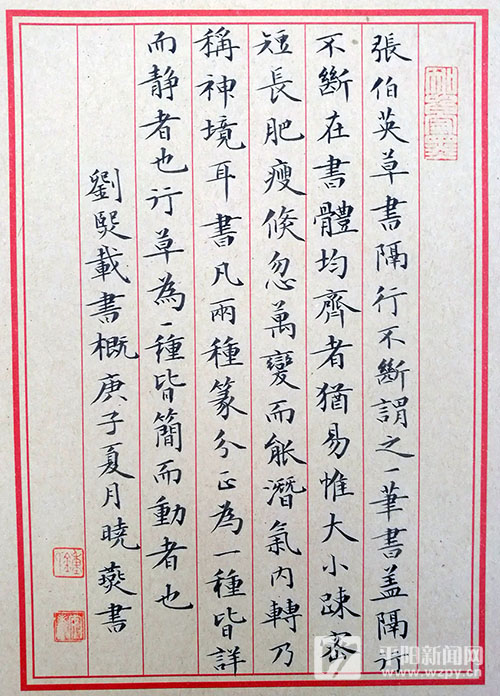 張伯英草書隔行不斷謂之一筆書盖隔行
不斷在書體均齊者猶易惟大小疎密
短長肥瘦倐忽萬變而能潛氣内轉乃
稱神境耳書凡兩種篆分正為一種皆詳
而静者也行草為一種皆簡而動者也
劉熙載書概庚子夏月曉燕書
平阳新闻网
www.wzpy.cn